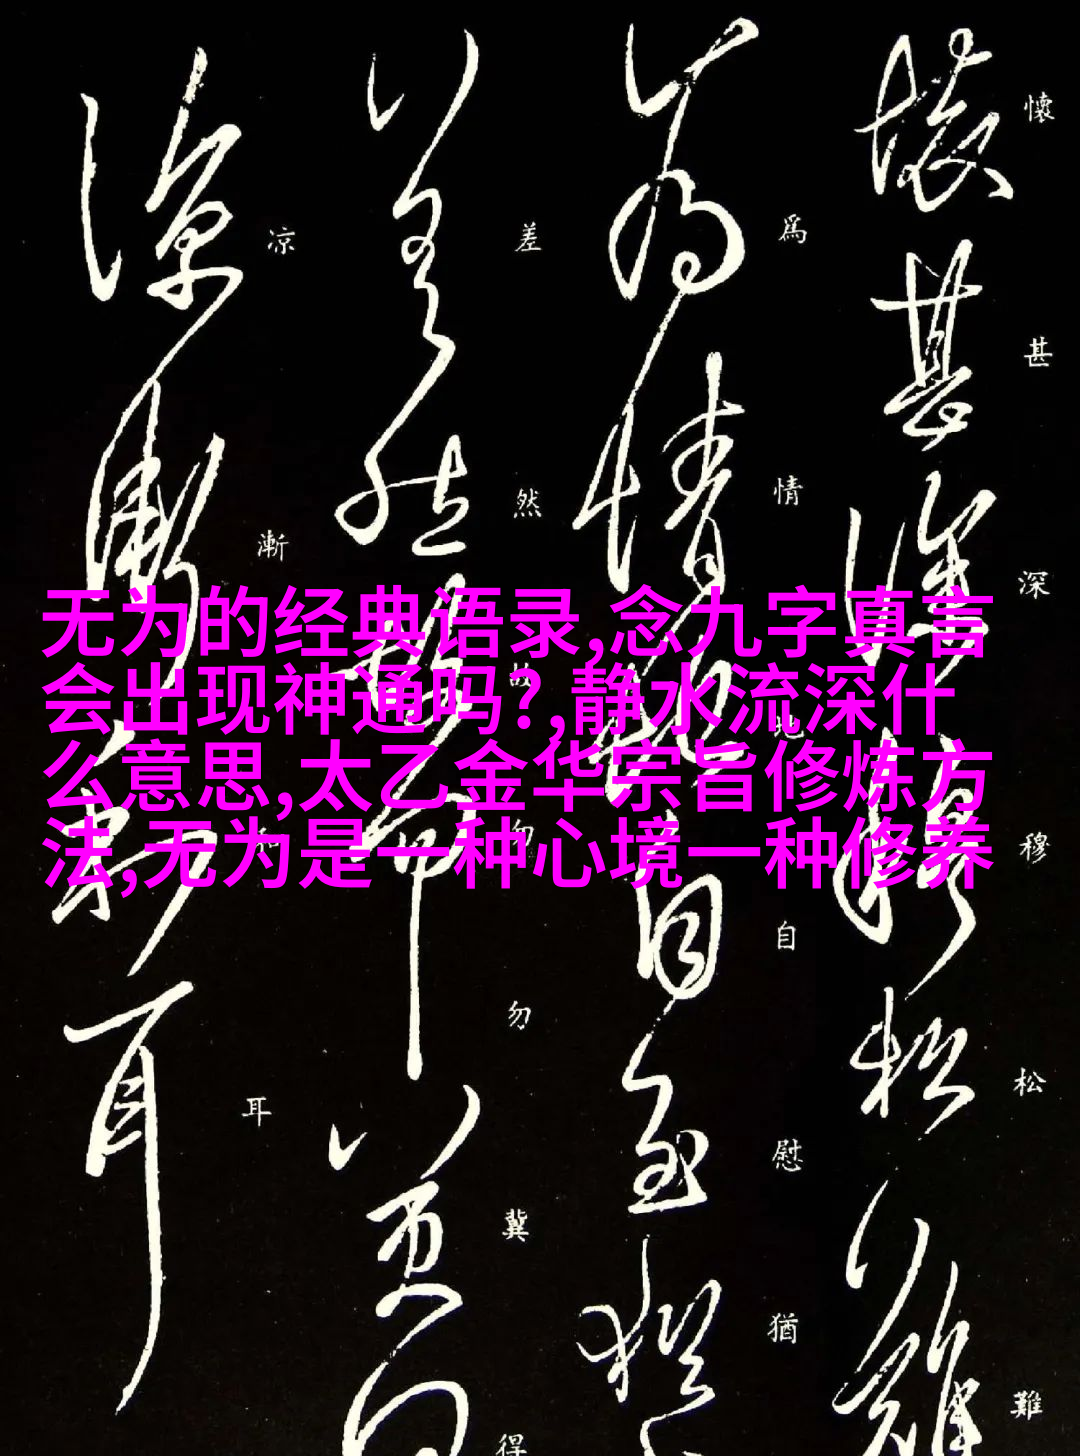 懷甚深穆松難
為情地自慰猶
差然故勿勿冀得
凉漸和耳
无为的经典语录,念九字真言
会出现神通吗?,静水流深什
么意思,太乙金华宗旨修炼方
法,无为是一种心境一种修养